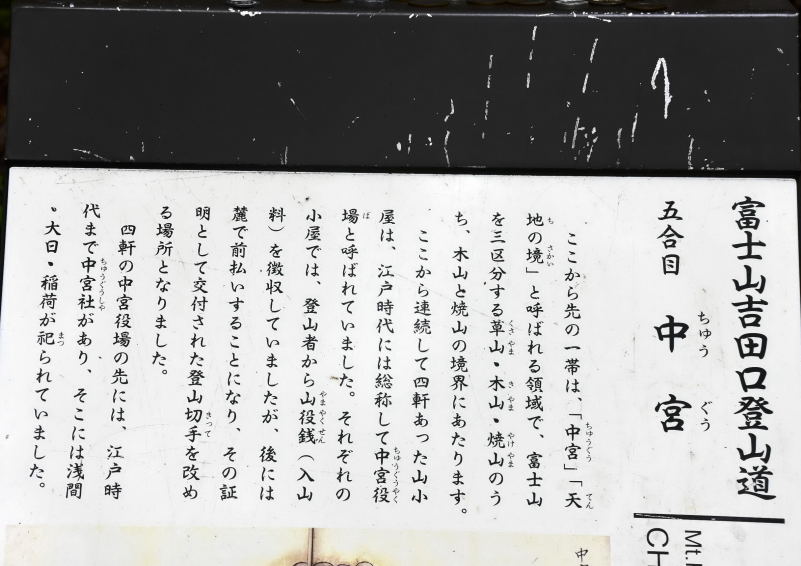 富士山吉田口登山道
五合目 中宮
ちゅう ぐう
ここから先の一帯は、「中宮」「天
ちゅうぐう てん
地の境」と呼ばれる領域で、富士山
ち さかい
を三区分する草山・木山・焼山のう
くさやま きやま やけやま
ち、木山と焼山の境界にあたります。
ここから連続して四軒あった山小
屋は、江戸時代には総称して中宮役
ちゅうぐうやく
場と呼ばれていました。それぞれの
ば
小屋では、登山者から山役銭（入山
やまやくせん
料）を徴収していましたが、後には
麓で前払いすることになり、その証
明として交付された登山切手を改め
きって
る場所となりました。
四軒の中宮役場の先には、江戸時
代まで中宮社があり、そこには浅間
ちゅうぐうしゃ
・大日・稲荷が祀られていました。
まつ
Mt.
CH
中